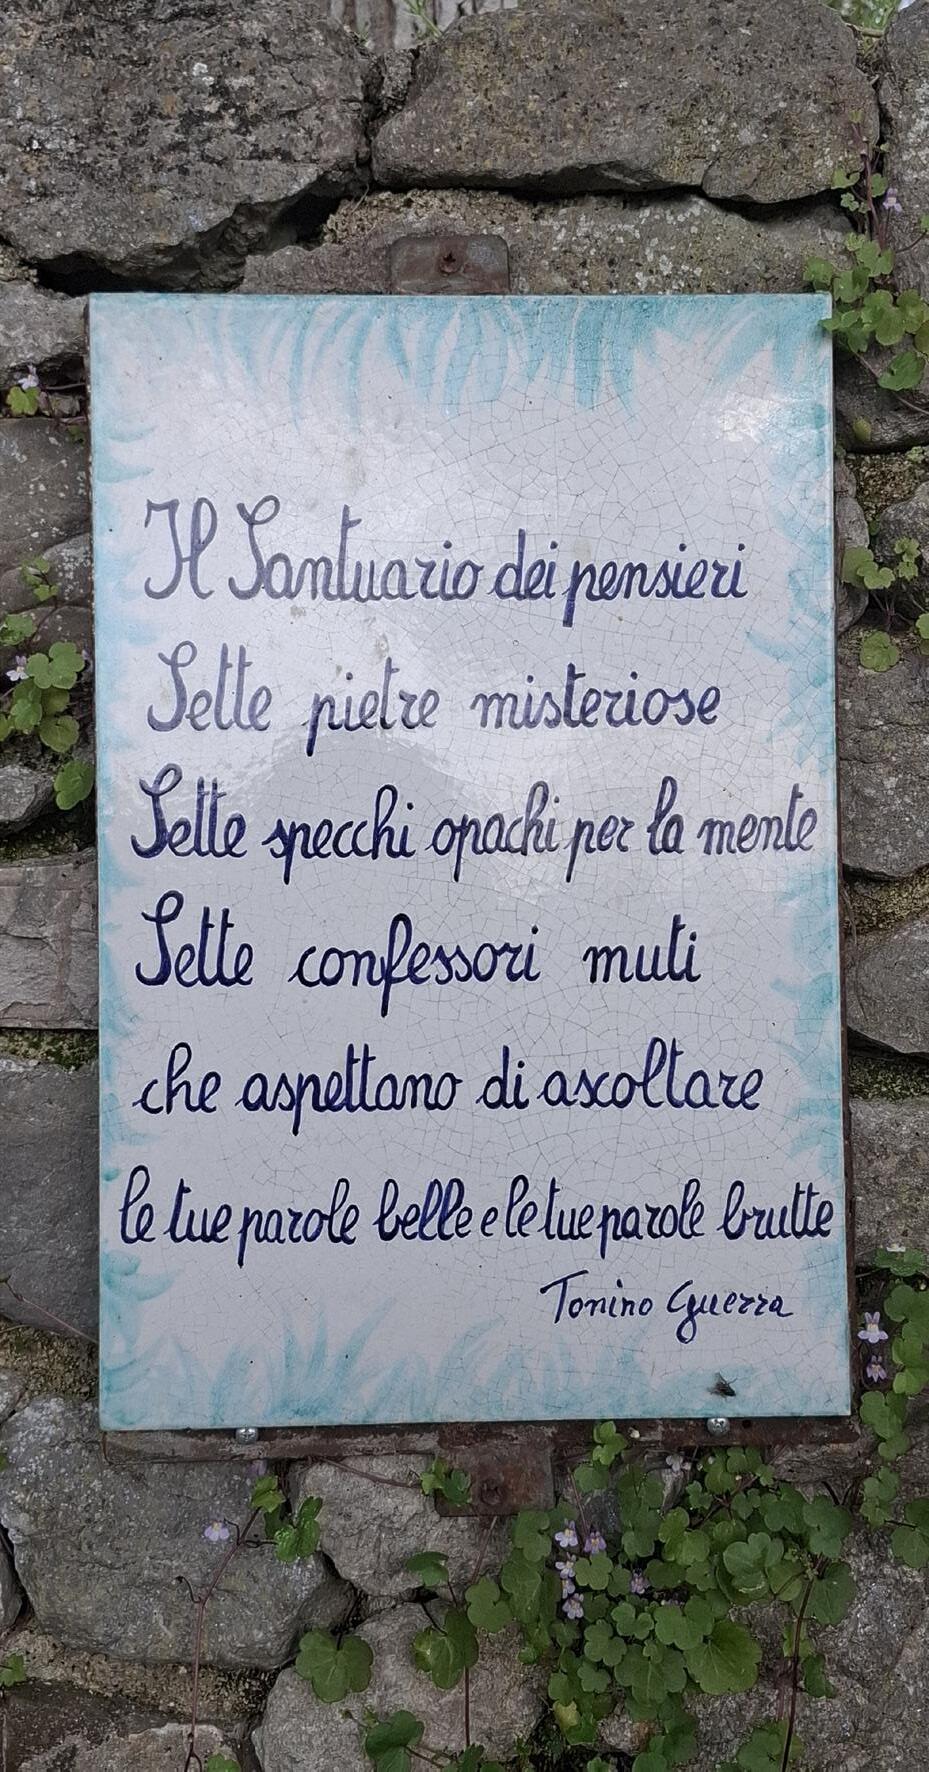 Il Santuario dei pensieri
Sette pietre misteriose
Sette specchi opachi per la mente
Sette confessori muti
che aspettano di ascoltare
le tue parole belle e le tue parole brutte
Tonino Guerra